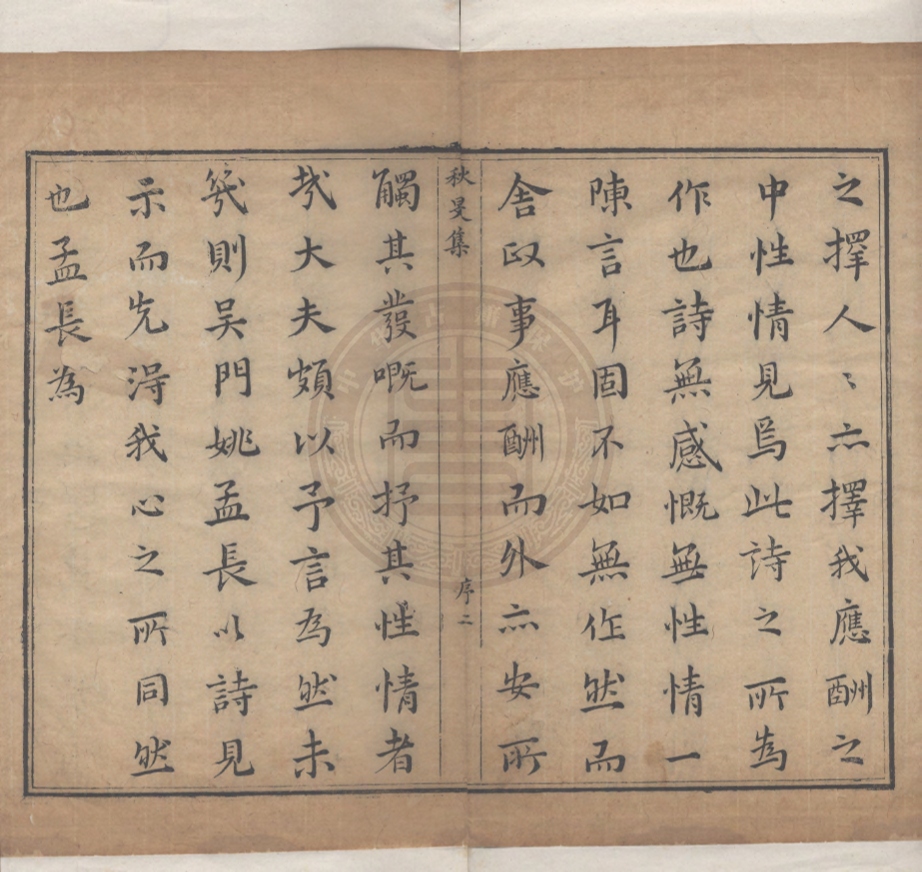 之擇人〻亦擇我應酬之
中性情見焉此詩之所為
作也詩無感慨無性情一
陳言耳固不如無作然而
舍政事應酬而外亦安所
秋旻集
序二
觸其發嘅而抒其性情者
哉大夫頗以予言為然未
幾則吴門姚孟長以詩見
示而先淂我心之所同然
也孟長為